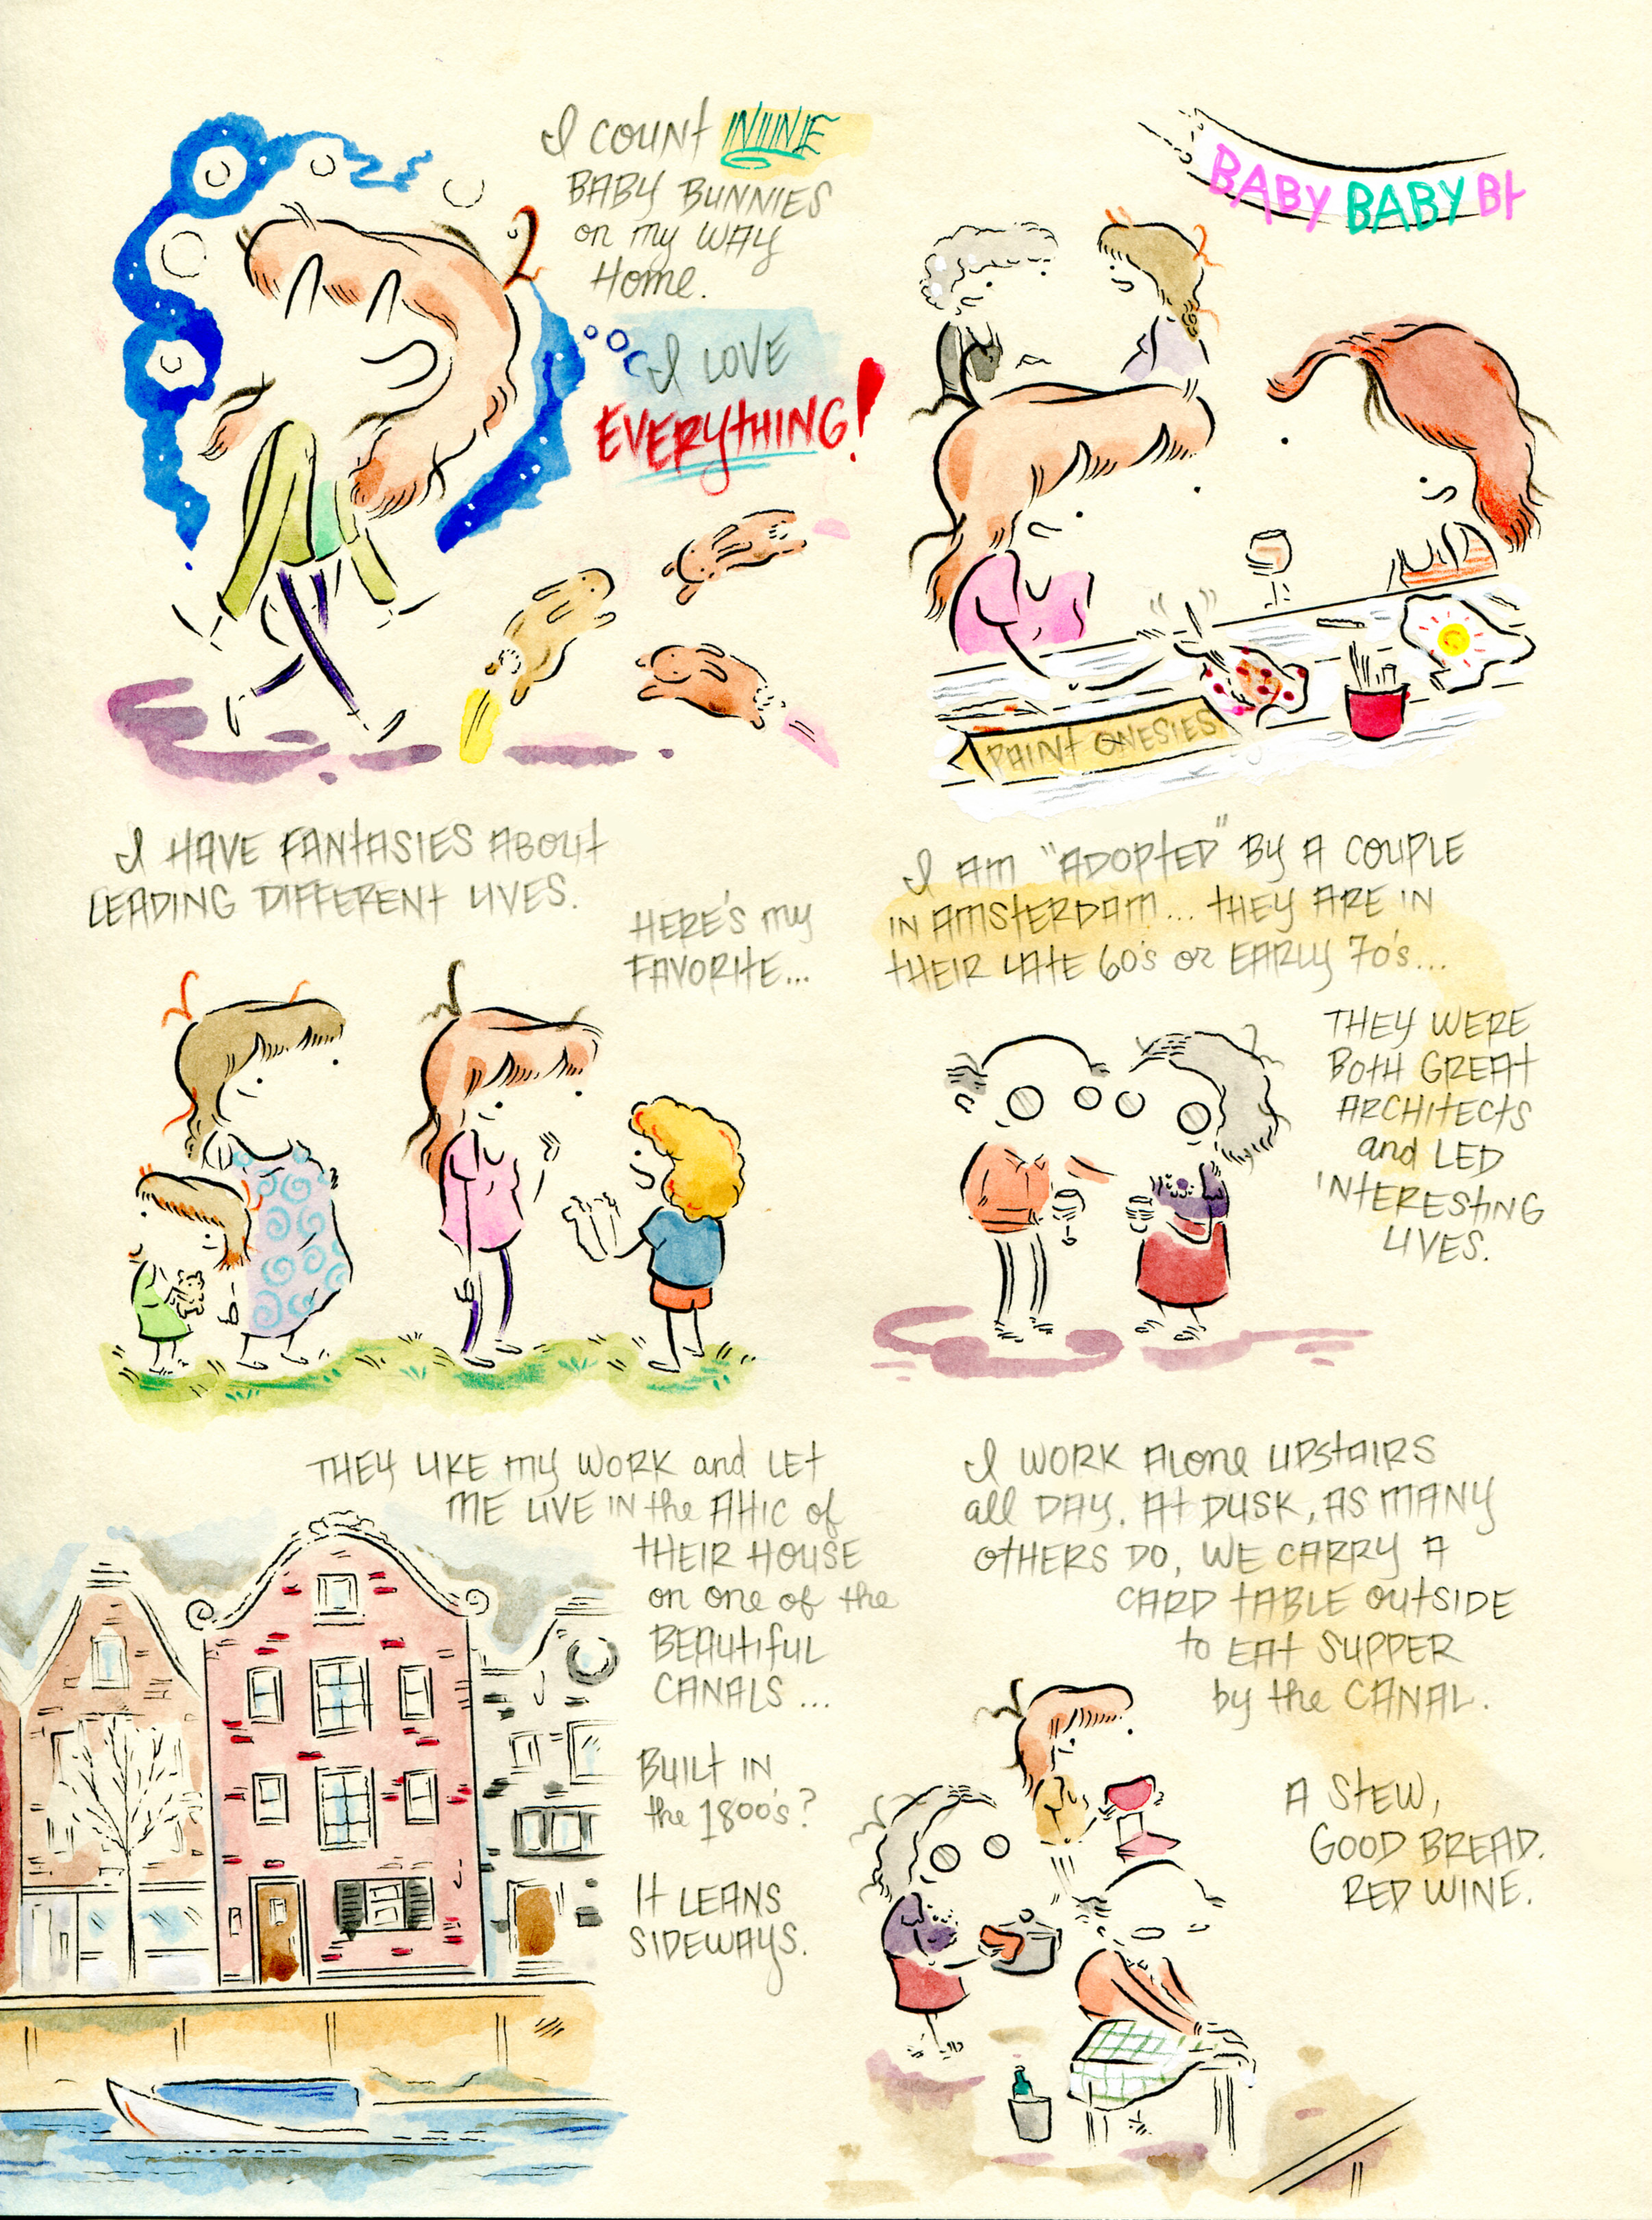 I COUNT NINE
BABY BUNNIES
on my WAY
Home.
I LOVE
EVERYTHING!
BABY BABY
PAINT ONESIES
I HAVE FANTASIES ABOUT
LEADING DIFFERENT LIVES.
HERE'S my
FAVORITE...
I AM "ADOPTED" BY A COUPLE
IN AMSTERDAM... THEY ARE IN
THEIR LATE 60's or EARLY 70's...
THEY WERE
BOTH GREAT
ARCHITECTS
and LED
INTERESTING
LIVES.
THEY LIKE my WORK and LET
ME LIVE IN the ATTIC of
THEIR HOUSE
on one of the
BEAUTIFUL
CANALS ...
BUILT IN
the 1800's?
It LEANS
SIDEWAYS.
I WORK ALONE UPSTAIRS
all DAY. At DUSK, AS MANY
OTHERS DO, WE CARRY A
CARD TABLE OUTSIDE
to EAT SUPPER
by the CANAL.
A STEW,
GOOD BREAD.
RED WINE.